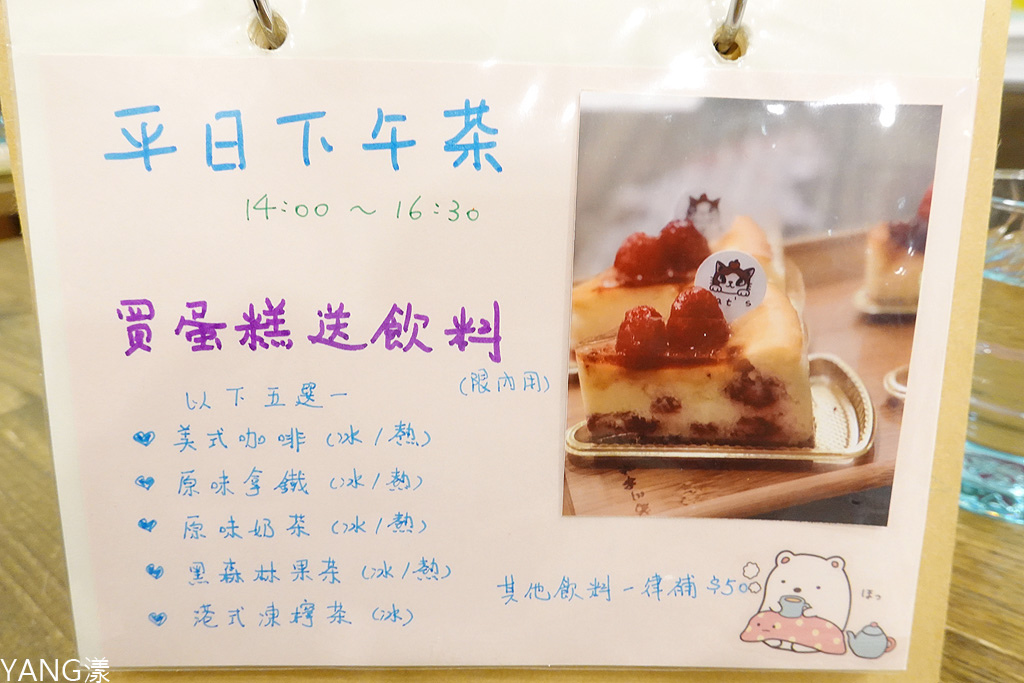 平日下午茶
14:00 ~ 16:30
買蛋糕送飲料
(限內用)
以下五選一
美式咖啡 (冰/熱)
原味拿鐵 (冰/熱)
原味奶茶 (冰/熱)
黑森林果茶 (冰/熱)
港式凍檸茶 (冰)
其他飲料一律補$50
ほっ
YANG漾